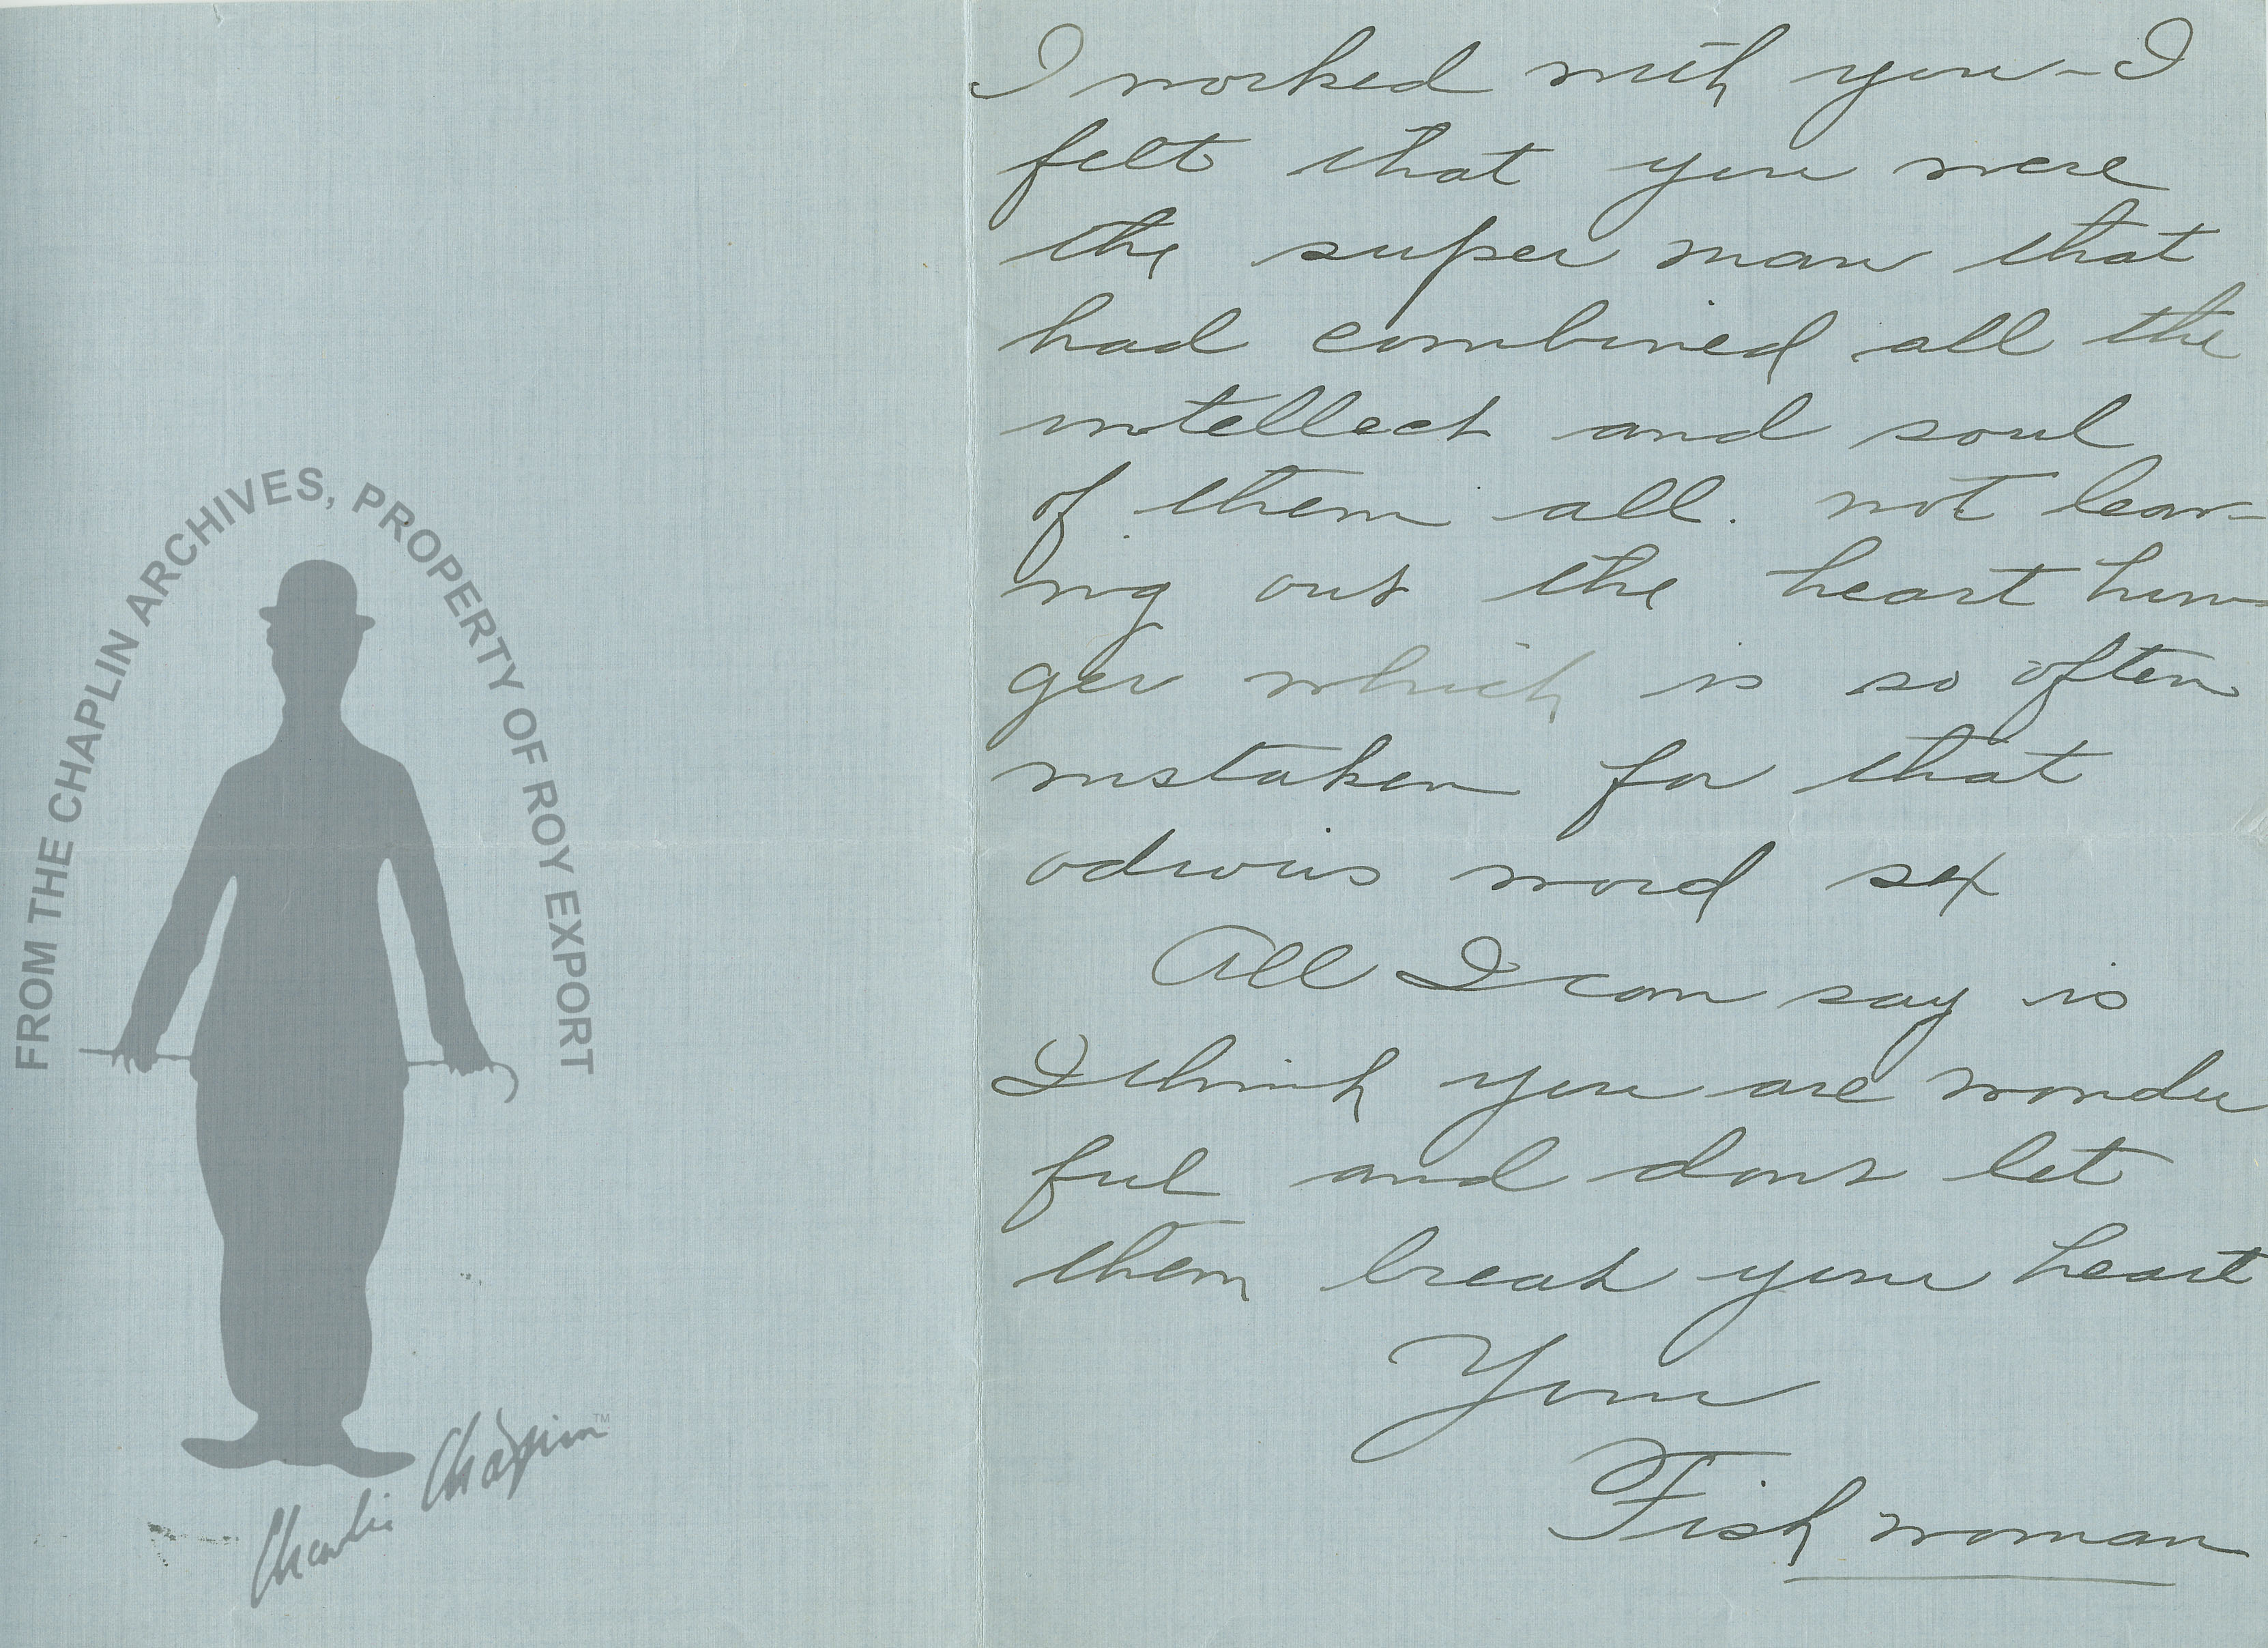 FROM THE CHAPLIN ARCHIVES, PROPERTY OF ROY EXPORT
Charlie Chaplin™
I worked with you - I
felt that you were
the super man that
had combined all the
intellect and soul
of them all. not leav-
ing out the heart hun-
ger which is so often
mistaken for that
odious word sex
All I can say is
I think you are wonder
ful and dont let
them break your heart
Your
Fish woman